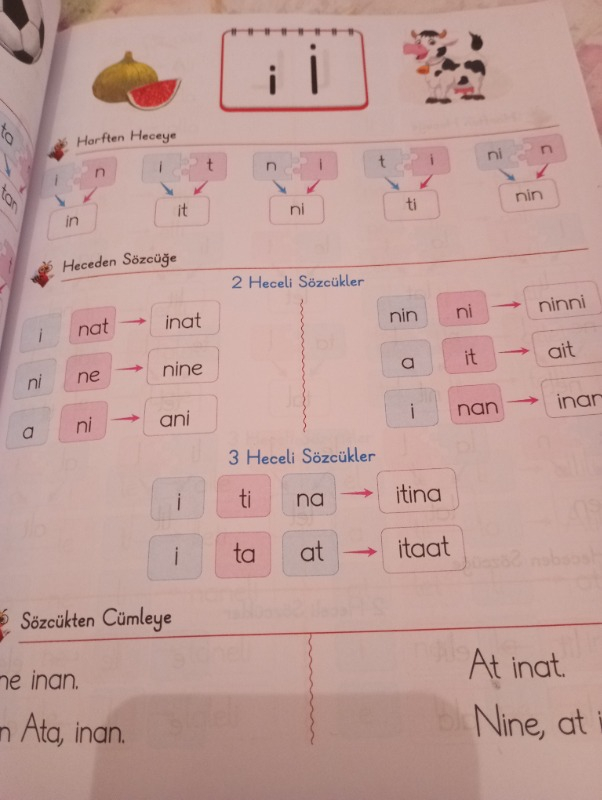 i İ
Harften Heceye
i n i t n i t i ni n
in it ni ti nin
Heceden Sözcüğe
2 Heceli Sözcükler
i nat inat
ni ne nine
a ni ani
nin ni ninni
a it ait
i nan inan
3 Heceli Sözcükler
i ti na itina
i ta at itaat
Sözcükten Cümleye
inan.
Ata, inan.
At inat.
Nine, at
ta
tan